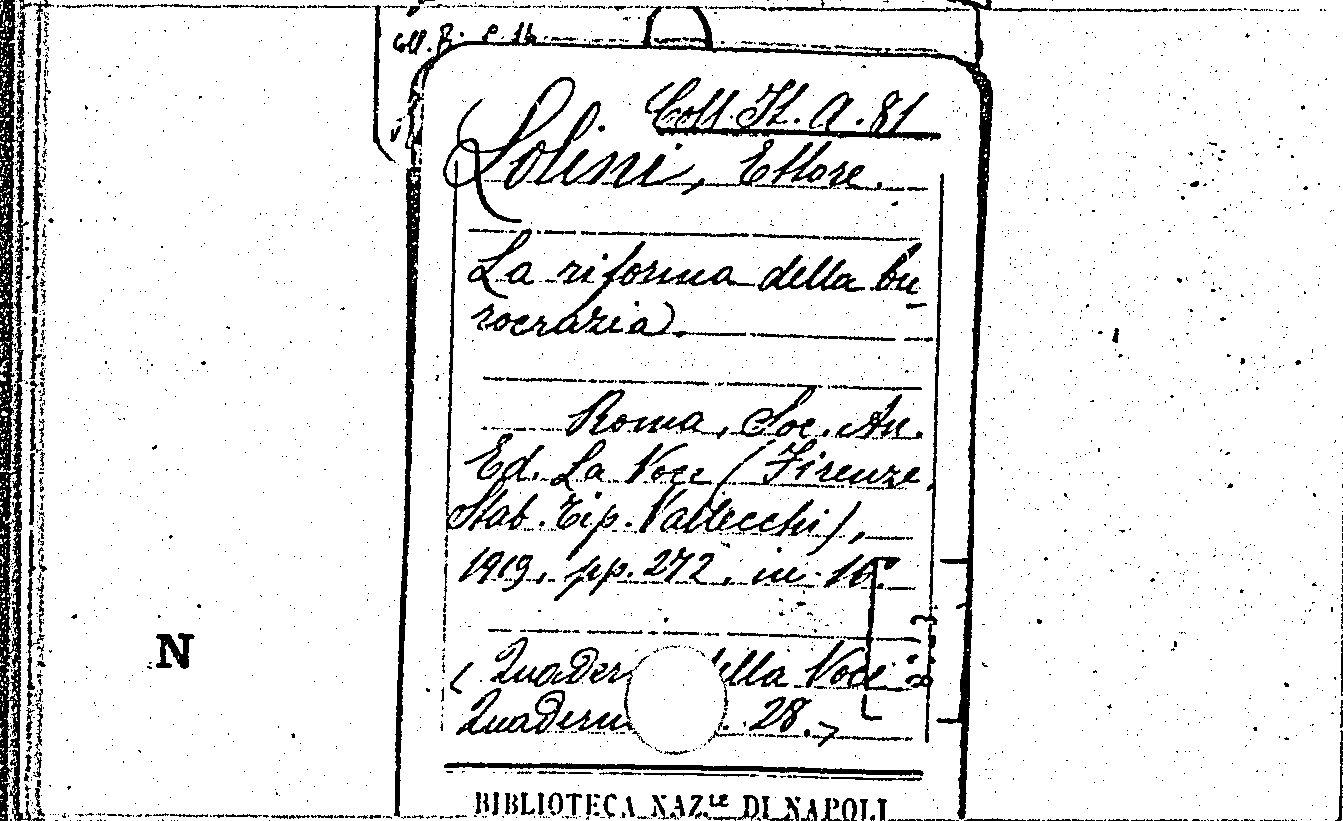 Coll. It. A. 81
Lolini, Ettore.
La riforma della bu-
rocrazia.
Roma, Soc. An.
Ed. La Voce (Firenze,
Stab. Tip. Vallecchi),
1919, pp. 272, in 16°
(Quader ella Voce
Quadern . 28.)
N
BIBLIOTECA NAZ.LE DI NAPOLI